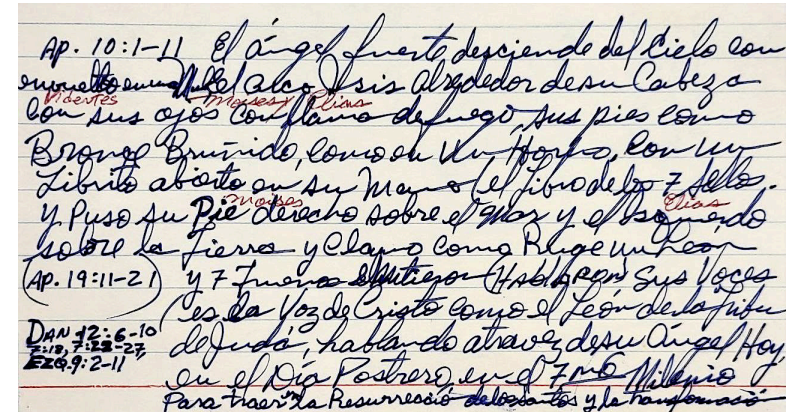 AP. 10:1-11 El Ángel fuerte desciende del Cielo con
envuelto en una Nube el arco Isis alrededor de su Cabeza
Videntes Moises y Elias
con sus ojos con flama de fuego, sus pies como
Bronce Bruñido, como en Un Horno, Con un
Librito abierto en su Mano (el libro de los 7 Sellos.
Moises Elias
y Puso su Pie derecho sobre el Mar y el Isquierdo
sobre la Tierra y Clamo como Ruge un León
(AP. 19:11-21) y 7 Truenos (Hablaron Sus Voces
(es la Voz de Cristo como el León de la Tribu
DAN 12:6-10 de Judá, hablando atravez de su Ángel Hoy,
7:13, 7:22-27,
EZQ. 9:2-11
en el Día Postrero, en el 7mo Milenio
Para traer la Resurrecció de los Santos y la transformació